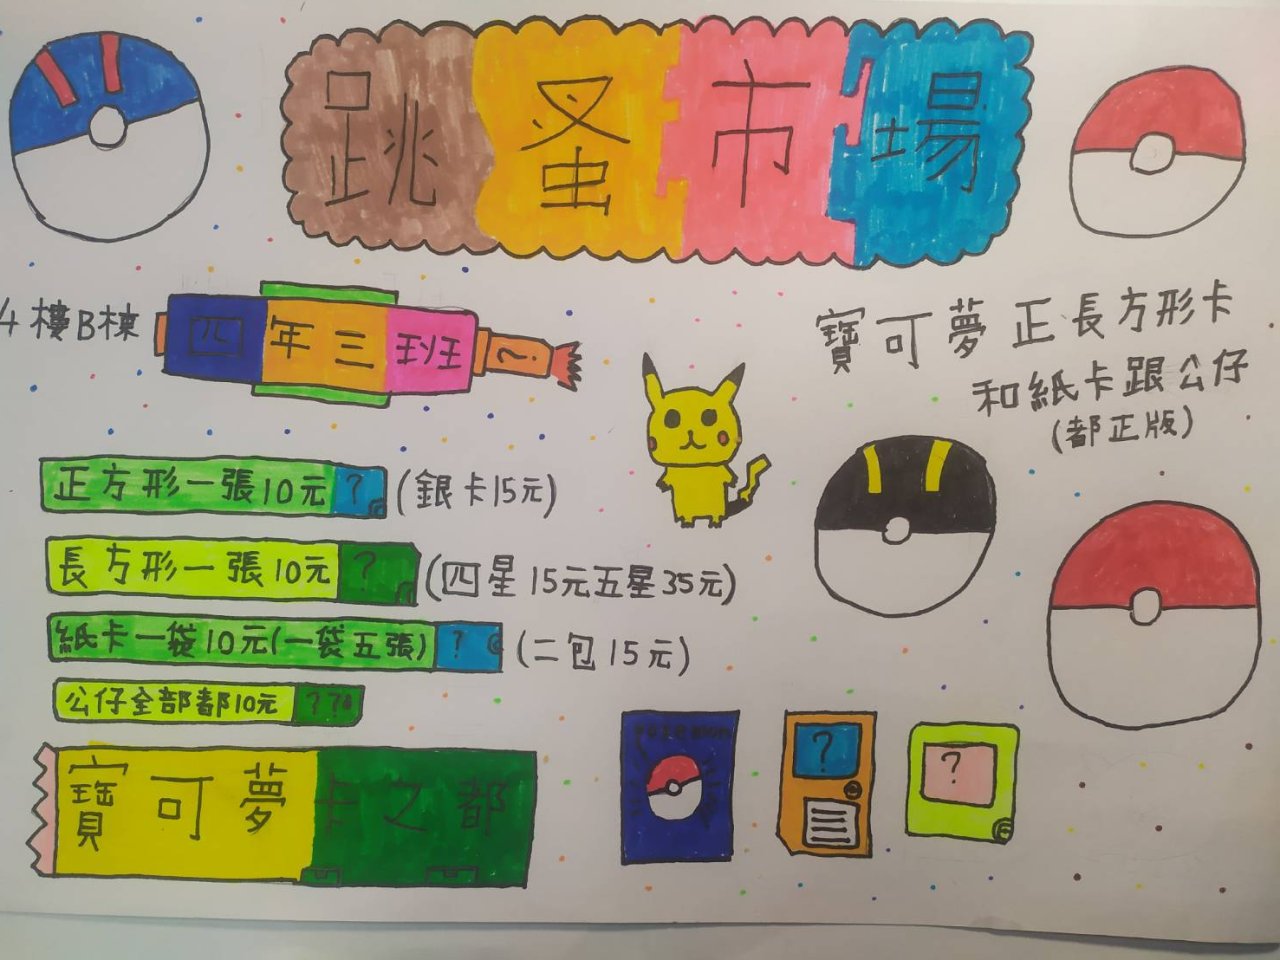 跳蚤市場
4樓B棟
四年三班
?
寶可夢正長方形卡
和紙卡跟公仔
(都正版)
正方形一張10元? (銀卡15元)
長方形一張10元? (四星15元五星35元)
紙卡一袋10元(一袋五張)? (二包15元)
公仔全部都10元???
寶可夢卡之都
?
?